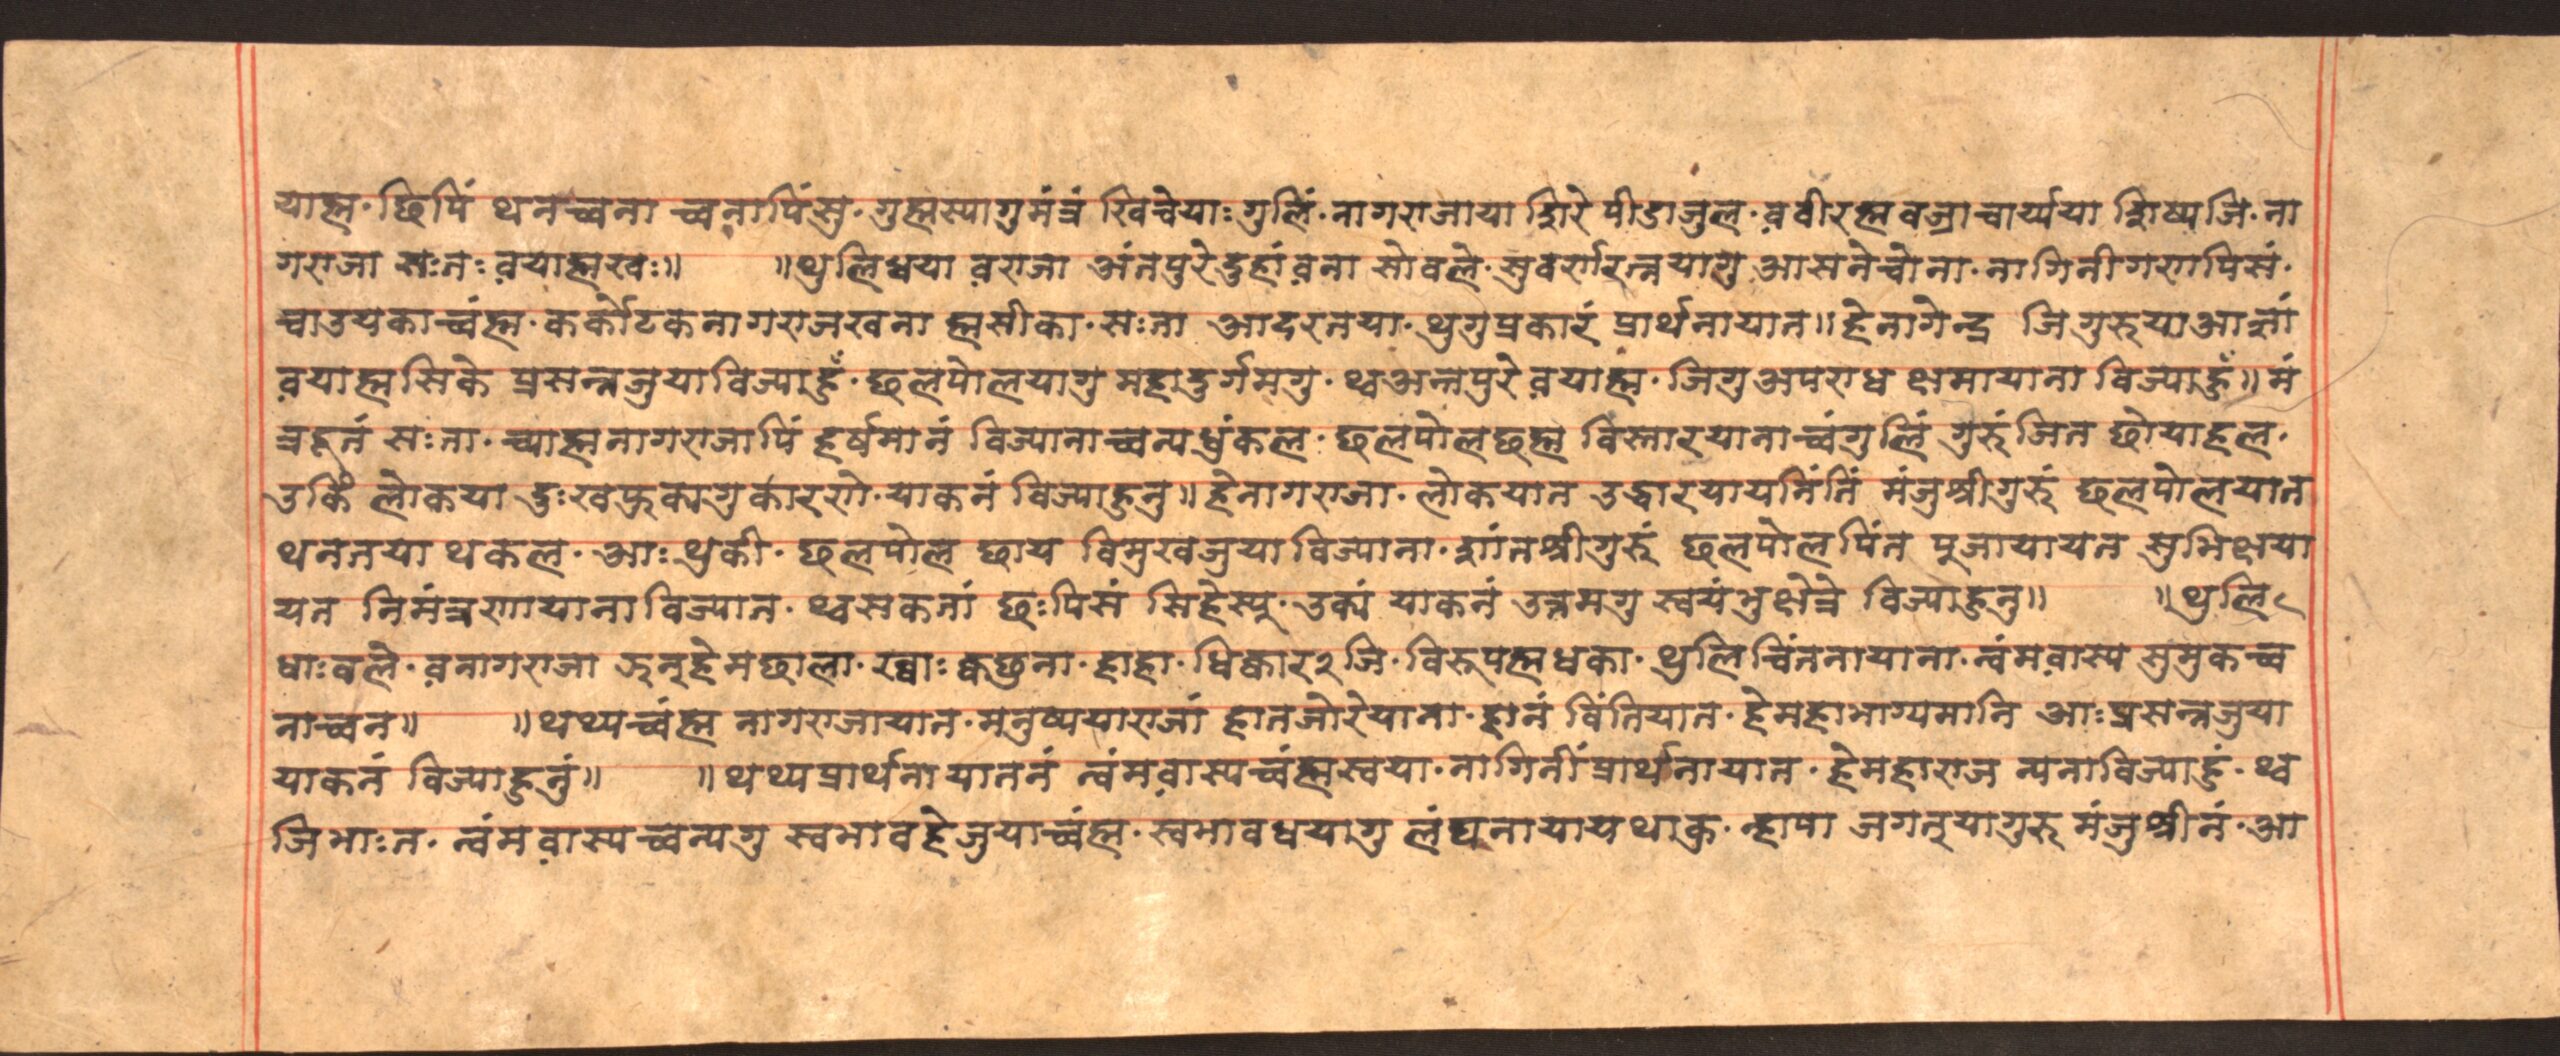 याह्म· छिपिं थनच्वना च्वनापिंसु· गुह्मस्यागुमंत्रं खिचेयाः गुलिं· नागराजाया शिरे पीडाजुल· व़वीरह्मवज्राचार्य्यया शिष्यजि· ना
गराजा सःतः व़याह्मखः॥ ॥थुलिधया व़राजा अंतपुरे दुहां व़ना सोवले· सुवर्णरत्नयागु आसनेचोना· नागिनीगणपिसं·
चाउयकाच्वंह्म· कर्कोटकनागराजखना ह्मसीका· सःता आदरनया· थुगुप्रकारं प्रार्थनायात॥ हेनागेन्द्र जिगुरुयाआज्ञां
व़याह्मसिके प्रसन्नजुयाविज्याहुँ· छलपोलयागु महादुर्गमगु· थ्वअन्तपुरे व़याह्म· जिगुअपराध क्षमायाना विज्याहुँ॥ मं
त्रहनं सःता· च्याह्मनागराजापिं हर्षमानं विज्यानाच्वन्यधुंकल· छलपोलछह्म विस्तारयानाच्वंगुलिं गुरुंजित छोयाहल·
उकिं लोकया दुःखफुक्यगुकारणे· याकनं विज्याहुनु॥ हेनागराजा· लोकयात उद्धारयायनिंतिं मंजुश्रीगुरुं छलपोलयात
थनतया थकल· आः थुकी· छलपोल छाय विमुखजुया विज्याना· शांतश्रीगुरुं छलपोलपिंत पुजायायत सुभिक्षया
यत निमंत्रणायानाविज्यात· थ्वसकतां छःपिसं सिहेस्यू· उक्यं याकनं उत्तमगु स्वयंभुक्षेत्रे विज्याहुनु॥ ॥थुलि
धाःवले· व़नागराजा ऊनूहेमछाला· ख्वाः क्वछुना· हाहा· धिक्कार२जि· विरूपह्मधका· थुलिचिंतनायाना· न्वंमव़ास्य सुमुकच्व
नाच्वन॥ ॥थथ्यच्वंह्म नागराजायात· मनुष्ययाराजां हातजोरेयाना· हानं विंतियात· हेमहाभाग्यमानि आः प्रसन्नजुया
याकनं विज्याहुनुं॥ ॥थथ्यप्रार्थनायाननं न्वंमव़ास्यच्वंह्मस्वया· नागिनीं प्रार्थनायात· हेमहाराज न्यनाविज्याहुं· थ्व
जिभाःत· न्वंमव़ास्यच्वन्यगु स्वभावहेजुयाच्वंह्म· स्वभावधयागु लंघनायायथाकु· न्हापा जगत्‌यागुरु मंजुश्रीनं· आ